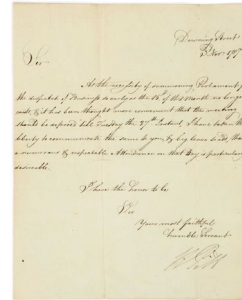 Downing Street
Nov. 1797
Sir
As the necessity of summoning Parliament for
the dispatch of Business so early as the of this Month no longer
exists, & it has been thought more convenient that the meeting
should be deferred till Tuesday the Instant, I have taken the
liberty to communicate the same to you, & beg leave to add, that
a numerous & respectable Attendance on that Day is particularly
desirable.
I have the honor to be
Sir
Your most faithful
humble Servant
W Pitt